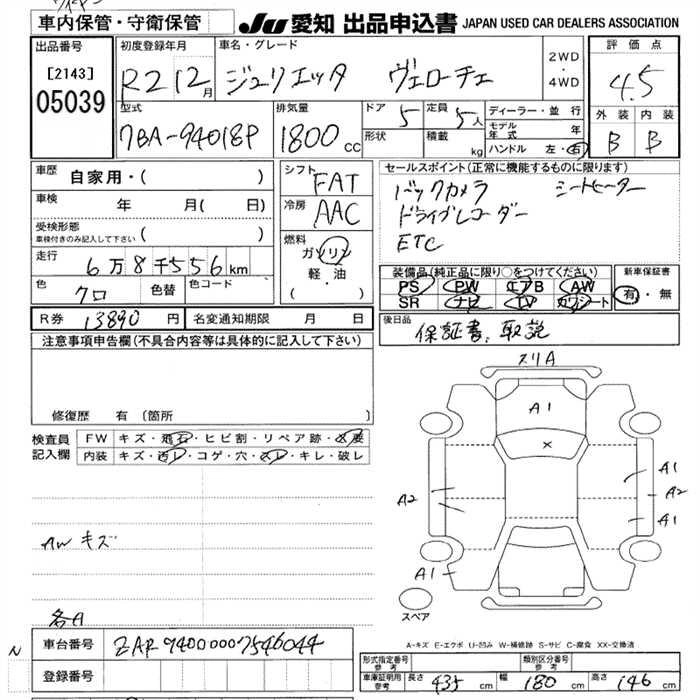 車内保管・守衛保管
JU 愛知 出品申込書 JAPAN USED CAR DEALERS ASSOCIATION
出品番号
[2143]
05039
初度登録年月
R2 12月
車名・グレード
ジュリエッタ ヴェローチェ
2WD・4WD
評価点
4.5
外装 内装
B B
型式
7BA-94018P
排気量
1800 CC
ドア 5
形状
定員 5人
積載 kg
ディーラー・並行
モデル年式 年
ハンドル 左・右
車歴
自家用・( )
車検 年 月( 日)
受検形態
車検付きのみ記入して下さい ( )
走行 6万8千556km
色 クロ 色替 色コード ( )
シフト FAT
冷房 AAC
燃料
ガソリン
軽・油
( ・ )
セールスポイント(正常に機能するものに限ります)
バックカメラ シートヒーター
ドライブレコーダー
ETC
装備品(純正品に限り○をつけてください)
PS PW エアB AW
SR ナビ TV カワシート
新車保証書
有・無
R券 13890円 名変通知期限 月 日
後日品
保証書、取説
注意事項申告欄(不具合内容等は具体的に記入して下さい)
修復歴 有(箇所 )
検査員記入欄
FW キズ・飛石・ヒビ割・リペア跡・X要
内装 キズ・汚レ・コゲ・穴・スレ・キレ・破レ
AW キズ
各A
スリA
A1
×
A1
A2
A2
A1
A1
スペア
A-キズ E-エクボ U-凹み W-補修跡 S-サビ C-腐食 XX-交換済
N
車台番号 ZAR94000007546044
登録番号
形式指定番号 参考
類別区分番号 参考
車庫証明用参考 長さ 435 cm 幅 180 cm 高さ 146 cm